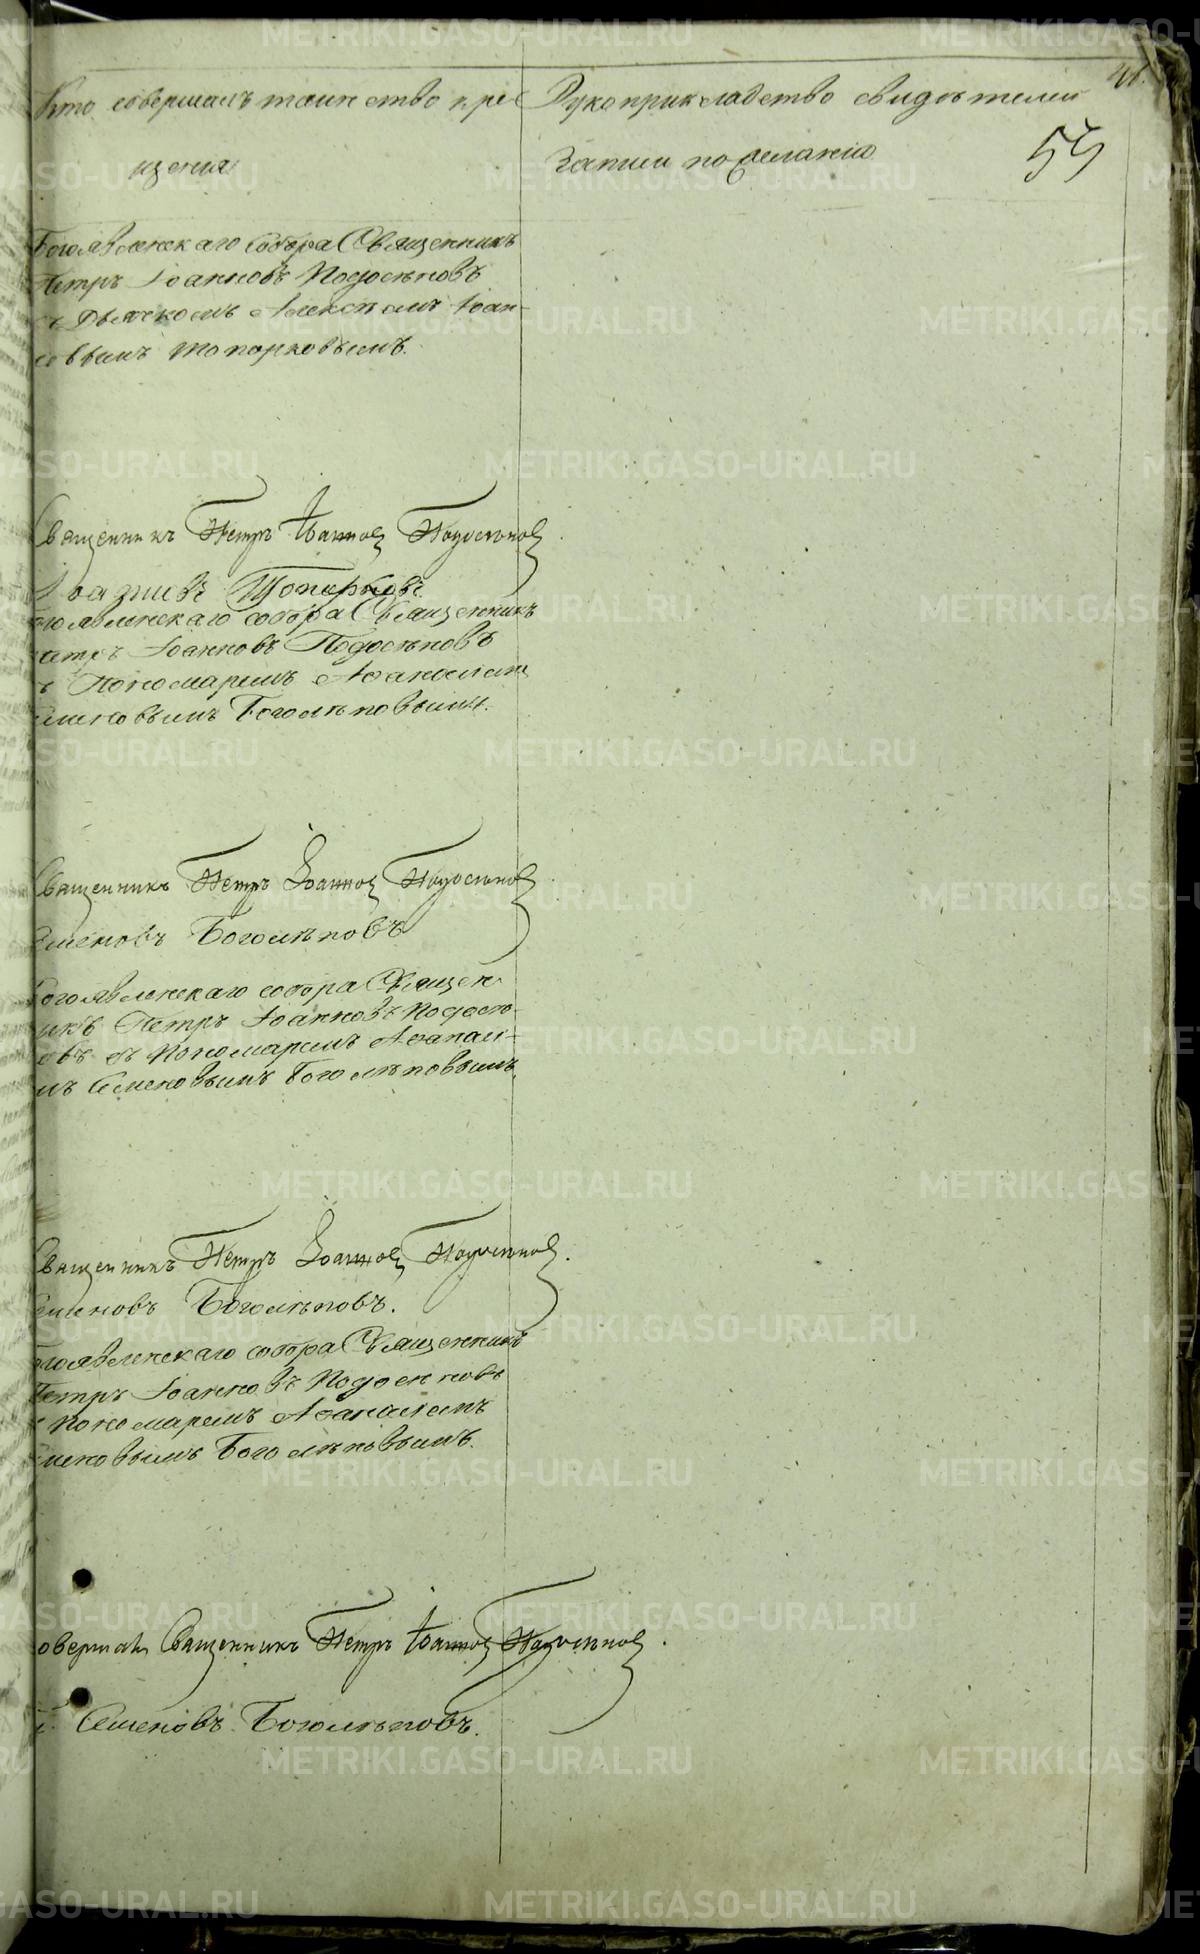 41.
Кто совершалъ таинство кре
щенія
Рукоприкладство свидѣтелей
записи по желанію
55
Богоявленскаго Собора Священникъ
Петръ Іоанновъ Подосеновъ
съ Дьячкомъ Алексѣемъ Іоан-
новымъ Топорковымъ.
Священникъ Петръ Іоанновъ Подосеновъ.
Топорковъ.
гоявленскаго собора Священникъ
етръ Іоанновъ Подосеновъ
ъ Пономаремъ Аѳанасіемъ
еменовымъ Боголѣповымъ.
Священникъ Петръ Іоанновъ Подосеновъ.
Семеновъ Боголѣповъ
Богоявленскаго собора Священ
никъ Петръ Іоанновъ Подосе-
овъ съ Пономаремъ Аѳанасі-
мъ Семеновымъ Боголѣповымъ.
Священникъ Петръ Іоанновъ Подосеновъ.
Семеновъ Боголѣповъ.
гоявленскаго собора Священникъ
Петръ Іоанновъ Подосеновъ
Пономаремъ Аѳанасіемъ
меновымъ Боголѣповымъ.
овершалъ Священникъ Петръ Іоанновъ Подосеновъ.
й Семеновъ Боголѣповъ.
METRIKI.GASO-URAL.RU